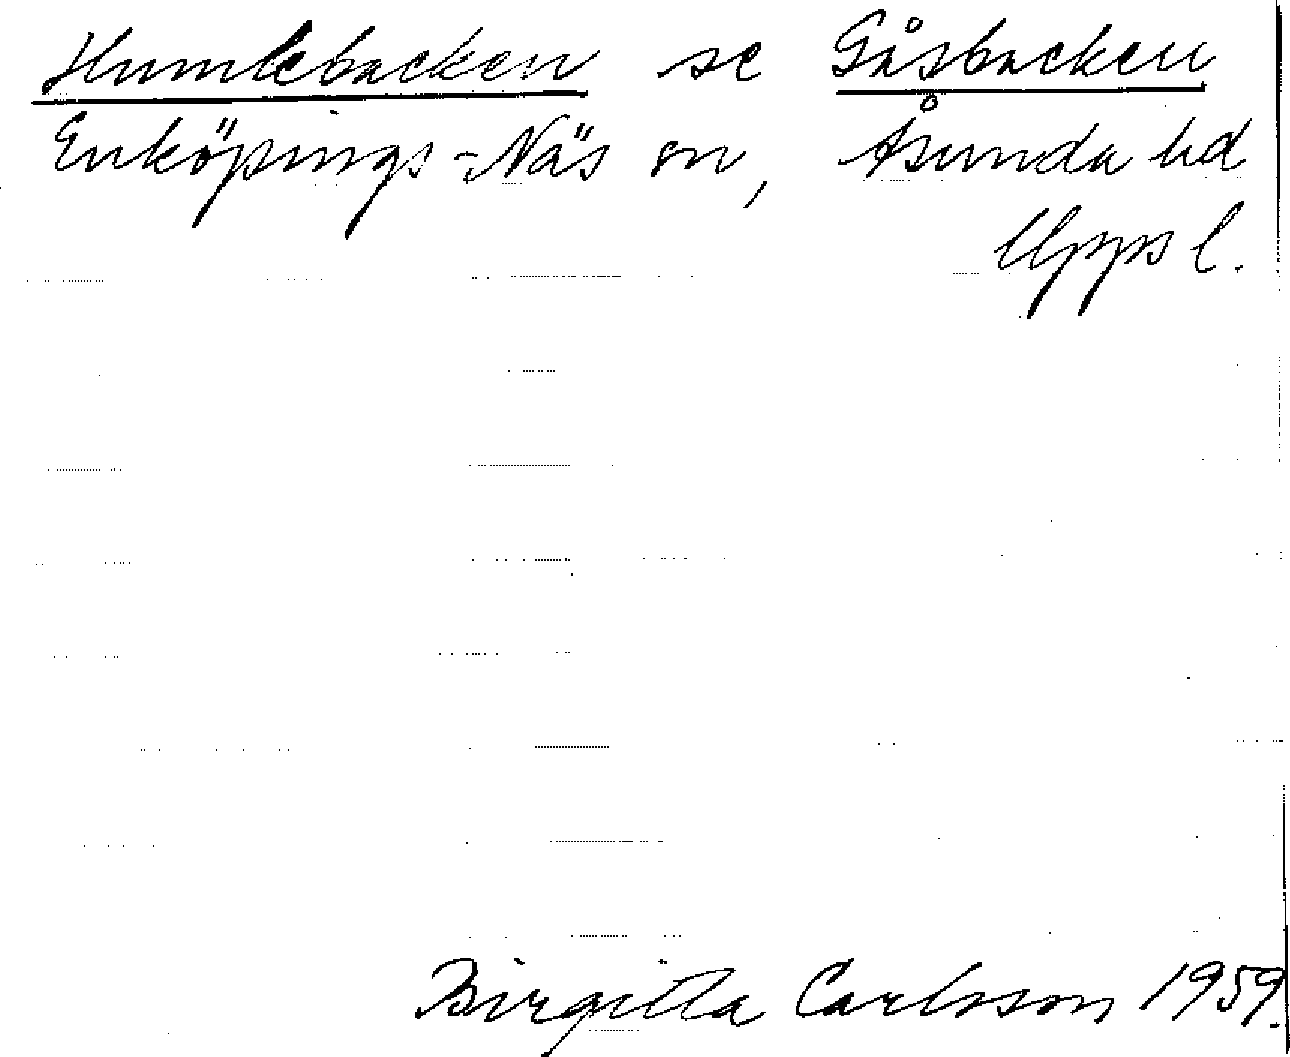 Humlebacken se Gåsbacken
Enköpings-Näs sn, Åsunda hd
Upps l.
Birgitta Carlsson 1959.